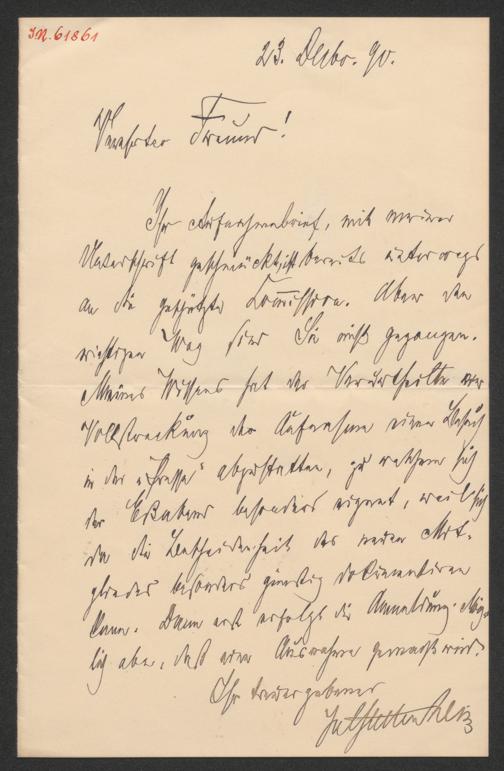 IN. 61861
23. Dezbr. 90.
Verehrter Freund!
Ihr Aufnahmsbrief, mit meiner
Unterschrift geschmückt, ist bereits unterwegs
an die geschätzte Commission. Aber den
richtigen Weg sind Sie nicht gegangen.
Meines Wissens hat der Verurtheilte vor
Vollstreckung der Aufnahme einen Besuch
in der "Presse" abzustatten, zu welchem sich
der Eßabend besonders eignet, weil sich
da die Bescheidenheit des neuen Mit-
gliedes besonders günstig dokumentiren
kann. Dann erst erfolgt die Anmeldung. Mög-
lich aber, daß eine Ausnahme gemacht wird.
Ihr treuergebener